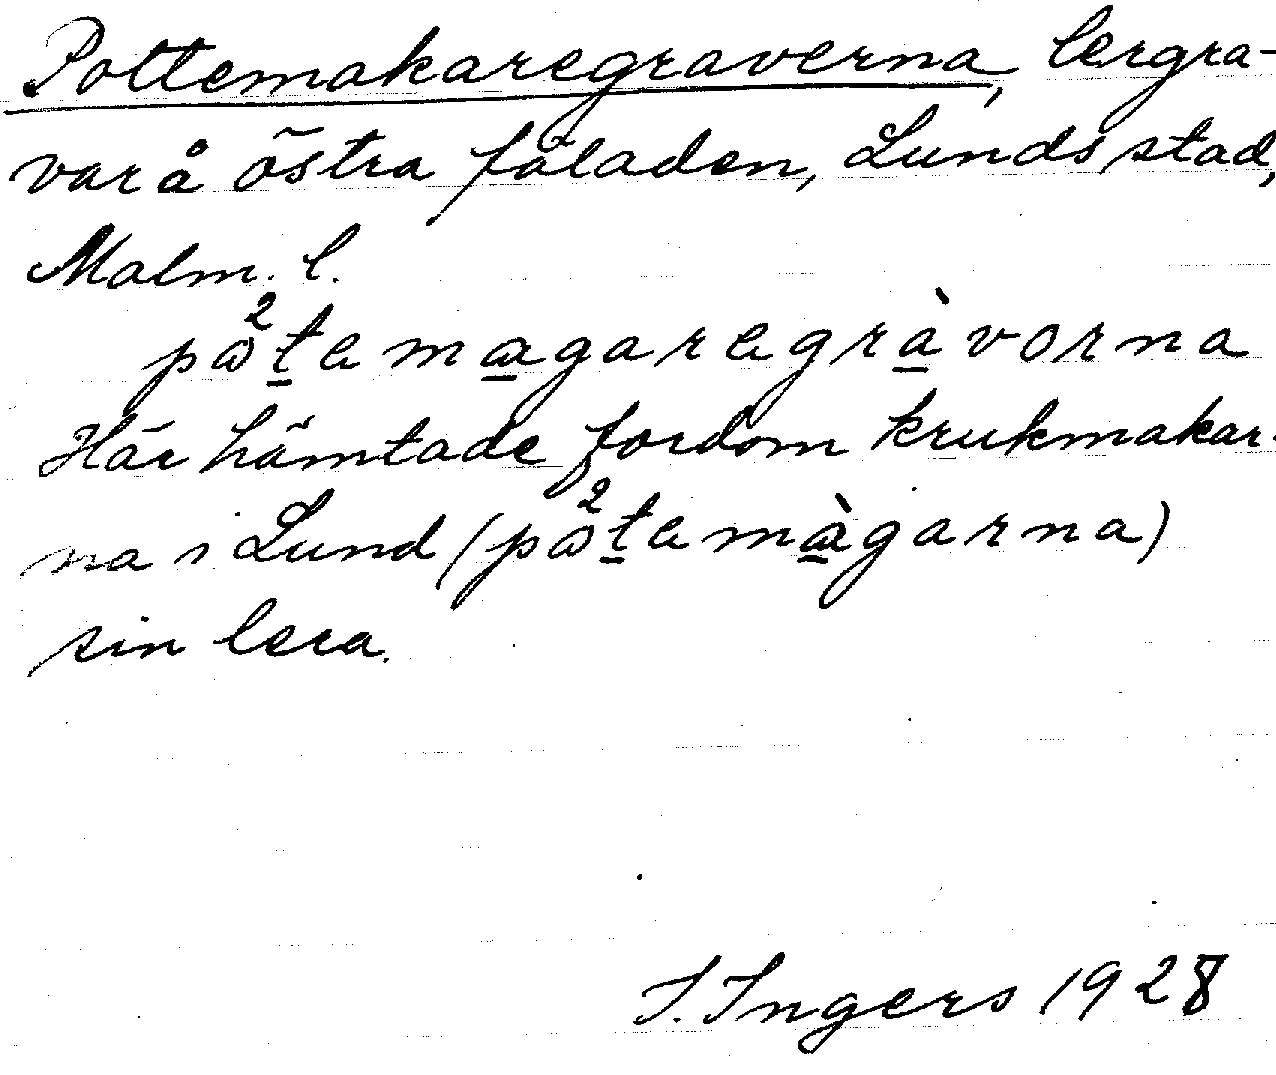 Pottemakaregraverna, lergra-
var å östra fäladen, Lunds stad,
Malm. l.
på²ṯema̱garegrà̱vorna
Här hämtade fordom krukmakar-
na i Lund (på²ṯemà̱garna)
sin lera.
I. Ingers 1928